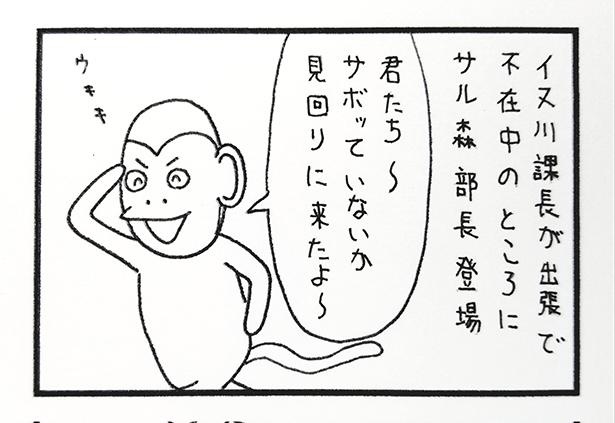 イヌ川課長が出張で
不在中のところに
サル森部長登場
君たち〜
サボっていないか
見回りに来たよ〜
ウキキ